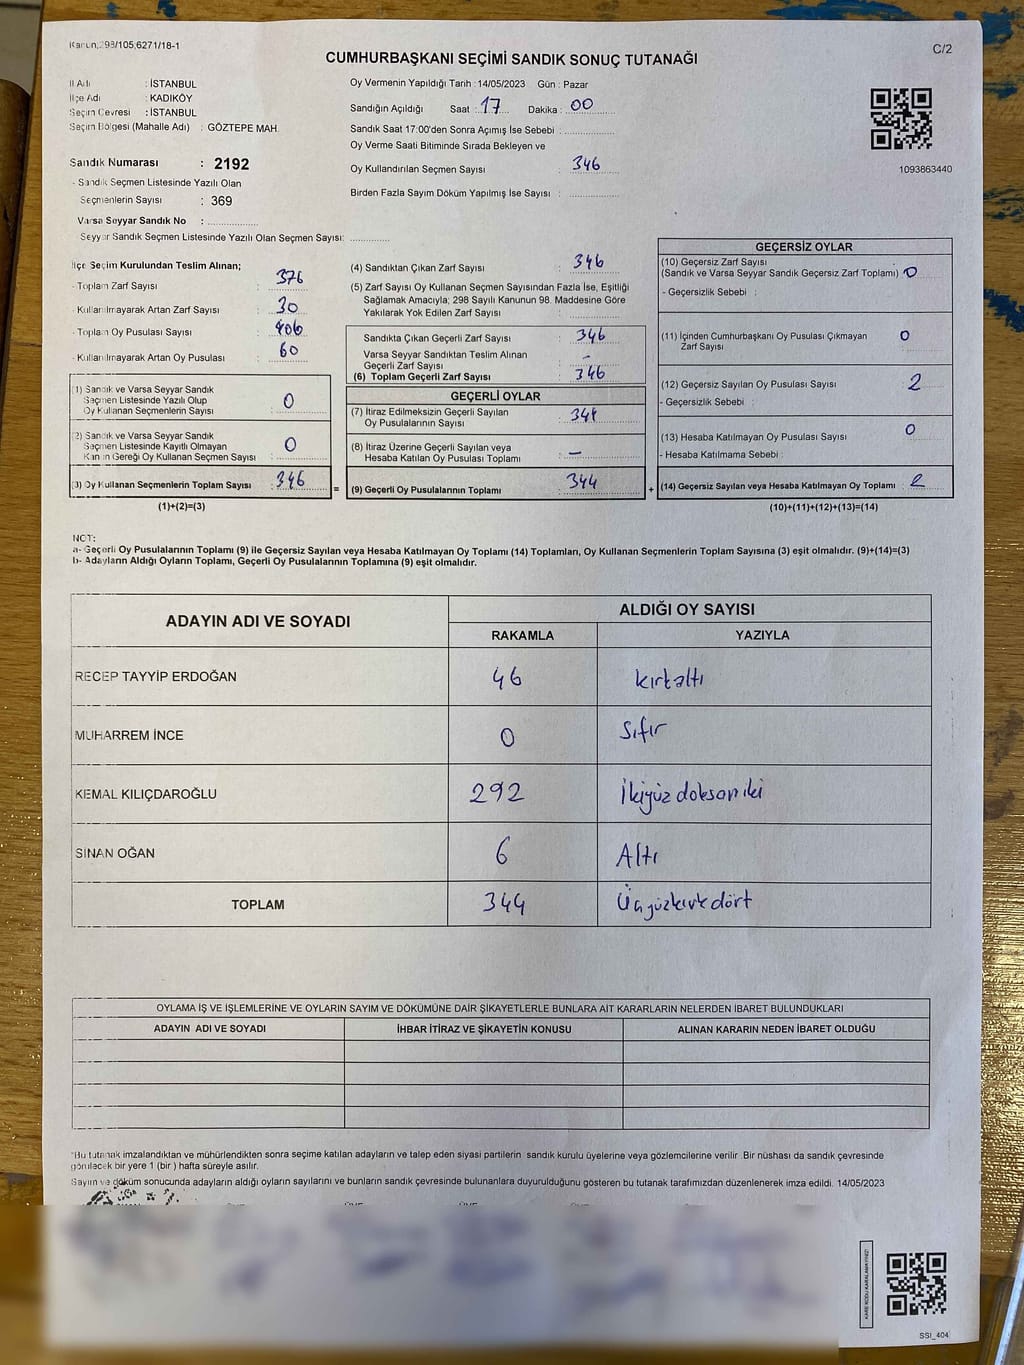 Kanun;298/105;6271/18-1
C/2
CUMHURBAŞKANI SEÇİMİ SANDIK SONUÇ TUTANAĞI
İl Adı : İSTANBUL
İlçe Adı : KADIKÖY
Seçim Çevresi : İSTANBUL
Seçim Bölgesi (Mahalle Adı) : GÖZTEPE MAH.
Sandık Numarası : 2192
- Sandık Seçmen Listesinde Yazılı Olan
Seçmenlerin Sayısı : 369
Varsa Seyyar Sandık No :
Seyyar Sandık Seçmen Listesinde Yazılı Olan Seçmen Sayısı:
Oy Vermenin Yapıldığı Tarih : 14/05/2023 Gün : Pazar
Sandığın Açıldığı Saat : 17 Dakika : 00
Sandık Saat 17:00'den Sonra Açımış İse Sebebi :
Oy Verme Saati Bitiminde Sırada Bekleyen ve
Oy Kullandırılan Seçmen Sayısı : 346
Birden Fazla Sayım Döküm Yapılmış İse Sayısı :
1093863440
İlçe Seçim Kurulundan Teslim Alınan;
- Toplam Zarf Sayısı : 376
- Kullanılmayarak Artan Zarf Sayısı : 30
- Toplam Oy Pusulası Sayısı : 406
- Kullanılmayarak Artan Oy Pusulası : 60
(1) Sandık ve Varsa Seyyar Sandık
Seçmen Listesinde Yazılı Olup
Oy Kullanan Seçmenlerin Sayısı : 0
(2) Sandık ve Varsa Seyyar Sandık
Seçmen Listesinde Kayıtlı Olmayan
Kanun Gereği Oy Kullanan Seçmen Sayısı : 0
(3) Oy Kullanan Seçmenlerin Toplam Sayısı : 346
(1)+(2)=(3)
=
(4) Sandıktan Çıkan Zarf Sayısı : 346
(5) Zarf Sayısı Oy Kullanan Seçmen Sayısından Fazla İse, Eşitliği
Sağlamak Amacıyla; 298 Sayılı Kanunun 98. Maddesine Göre
Yakılarak Yok Edilen Zarf Sayısı :
Sandıkta Çıkan Geçerli Zarf Sayısı : 346
Varsa Seyyar Sandıktan Teslim Alınan
Geçerli Zarf Sayısı : -
(6) Toplam Geçerli Zarf Sayısı : 346
GEÇERLİ OYLAR
(7) İtiraz Edilmeksizin Geçerli Sayılan
Oy Pusulalarının Sayısı : 344
(8) İtiraz Üzerine Geçerli Sayılan veya
Hesaba Katılan Oy Pusulası Toplamı : -
(9) Geçerli Oy Pusulalarının Toplamı : 344
+
GEÇERSİZ OYLAR
(10) Geçersiz Zarf Sayısı
(Sandık ve Varsa Seyyar Sandık Geçersiz Zarf Toplamı) : 0
- Geçersizlik Sebebi :
(11) İçinden Cumhurbaşkanı Oy Pusulası Çıkmayan
Zarf Sayısı 0
(12) Geçersiz Sayılan Oy Pusulası Sayısı : 2
- Geçersizlik Sebebi :
(13) Hesaba Katılmayan Oy Pusulası Sayısı : 0
- Hesaba Katılmama Sebebi :
(14) Geçersiz Sayılan veya Hesaba Katılmayan Oy Toplamı : 2
(10)+(11)+(12)+(13)=(14)
NOT:
a- Geçerli Oy Pusulalarının Toplamı (9) ile Geçersiz Sayılan veya Hesaba Katılmayan Oy Toplamı (14) Toplamları, Oy Kullanan Seçmenlerin Toplam Sayısına (3) eşit olmalıdır. (9)+(14)=(3)
b- Adayların Aldığı Oyların Toplamı, Geçerli Oy Pusulalarının Toplamına (9) eşit olmalıdır.
ADAYIN ADI VE SOYADI
ALDIĞI OY SAYISI
RAKAMLA YAZIYLA
RECEP TAYYİP ERDOĞAN 46 kırkaltı
MUHARREM İNCE 0 Sıfır
KEMAL KILIÇDAROĞLU 292 İkiyüz doksan iki
SİNAN OĞAN 6 Altı
TOPLAM 344 Üçyüzkırk dört
OYLAMA İŞ VE İŞLEMLERİNE VE OYLARIN SAYIM VE DÖKÜMÜNE DAİR ŞİKAYETLERLE BUNLARA AİT KARARLARIN NELERDEN İBARET BULUNDUKLARI
ADAYIN ADI VE SOYADI İHBAR İTİRAZ VE ŞİKAYETİN KONUSU ALINAN KARARIN NEDEN İBARET OLDUĞU
*Bu tutanak imzalandıktan ve mühürlendikten sonra seçime katılan adayların ve talep eden siyasi partilerin sandık kurulu üyelerine veya gözlemcilerine verilir. Bir nüshası da sandık çevresinde
görülecek bir yere 1 (bir ) hafta süreyle asılır.
Sayım ve döküm sonucunda adayların aldığı oyların sayılarını ve bunların sandık çevresinde bulunanlara duyurulduğunu gösteren bu tutanak tarafımızdan düzenlenerek imza edildi. 14/05/2023
SSI_404